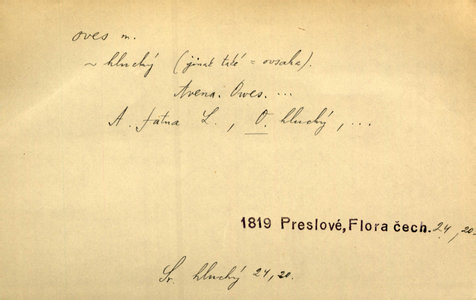 oves m.
~ hluchý (jinak také = ovsaha).
Avena. Owes. ...
A. fatua L., O. hluchý, ...
1819 Preslové, Flora čech. 24, 20.
Sr. hluchý 24, 20.